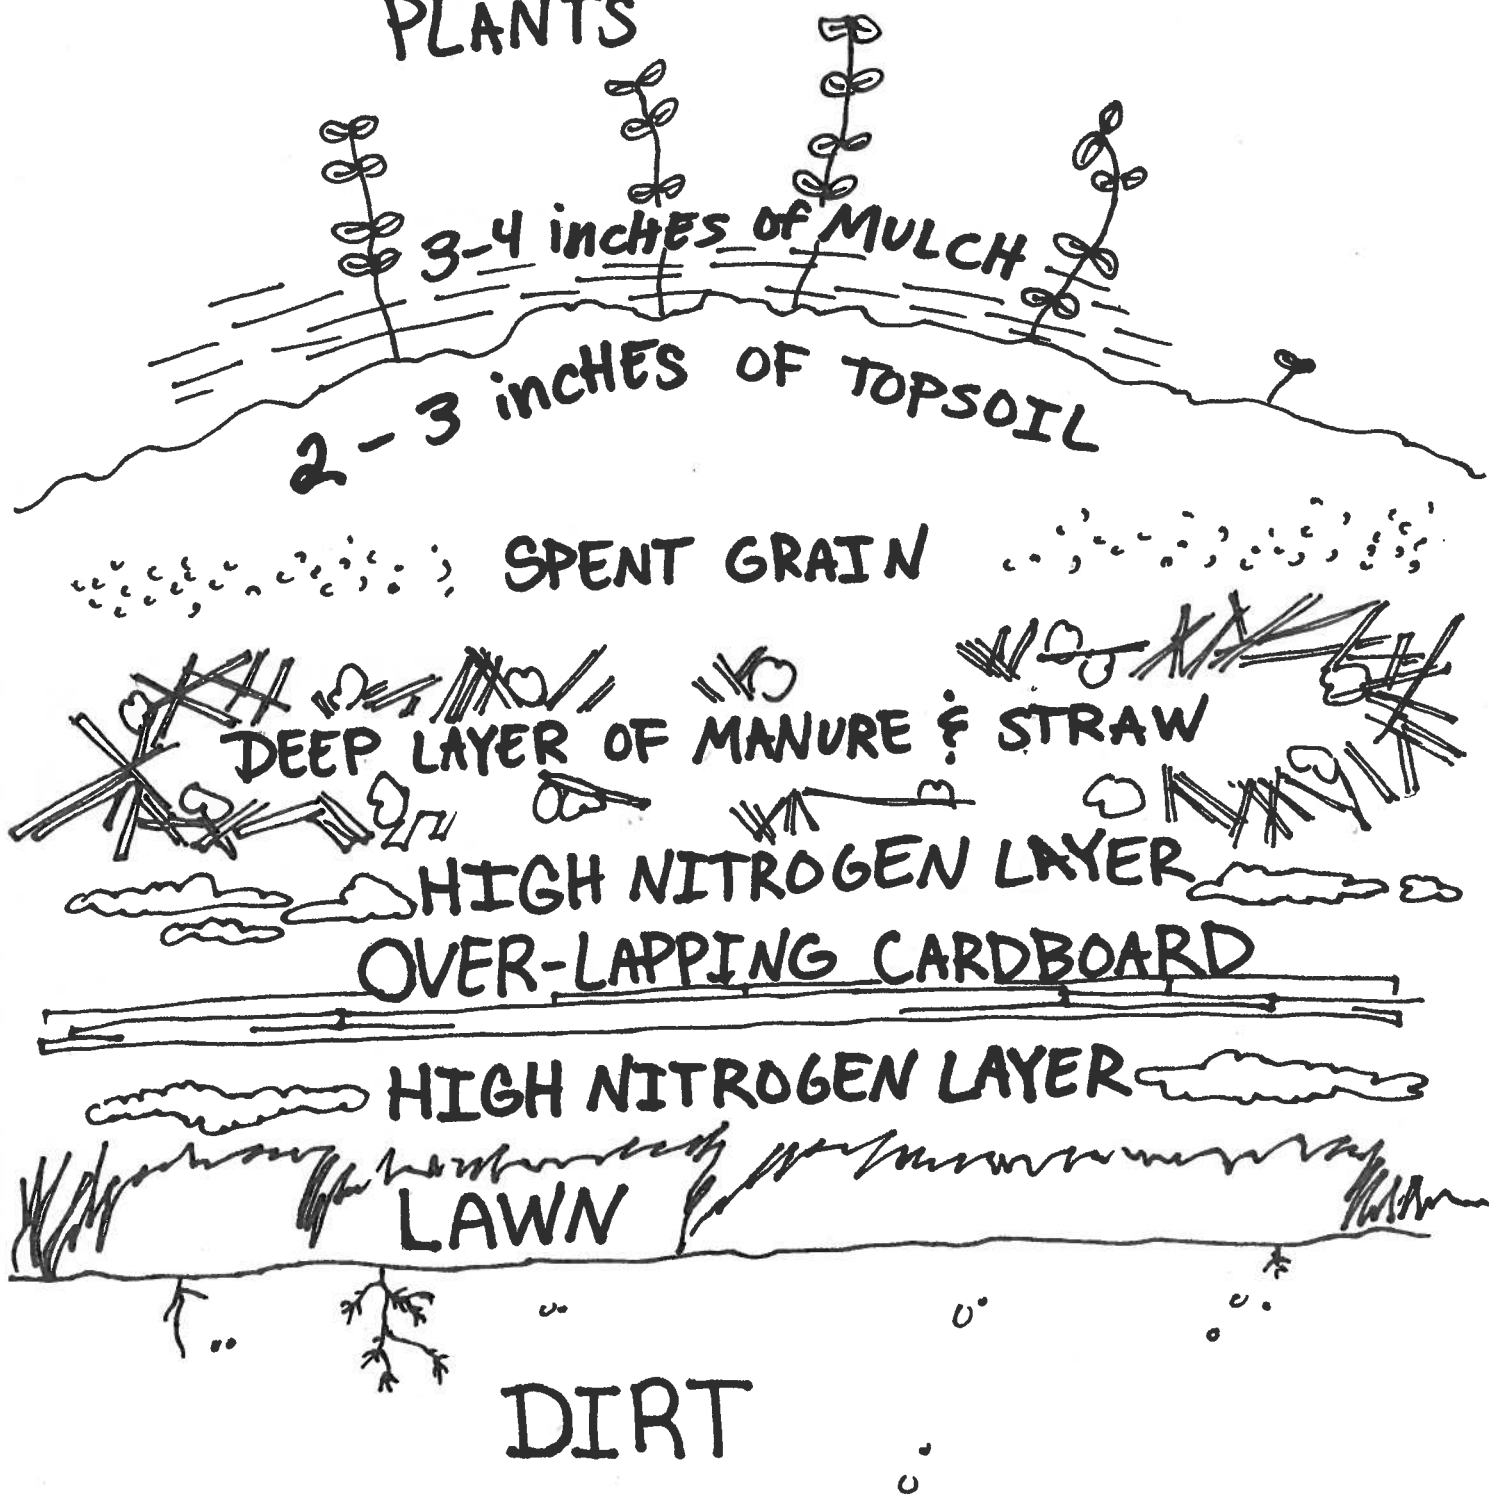 PLANTS
3-4 inches of MULCH
2-3 inches OF TOPSOIL
SPENT GRAIN
DEEP LAYER OF MANURE & STRAW
HIGH NITROGEN LAYER
OVER-LAPPING CARDBOARD
HIGH NITROGEN LAYER
LAWN
DIRT